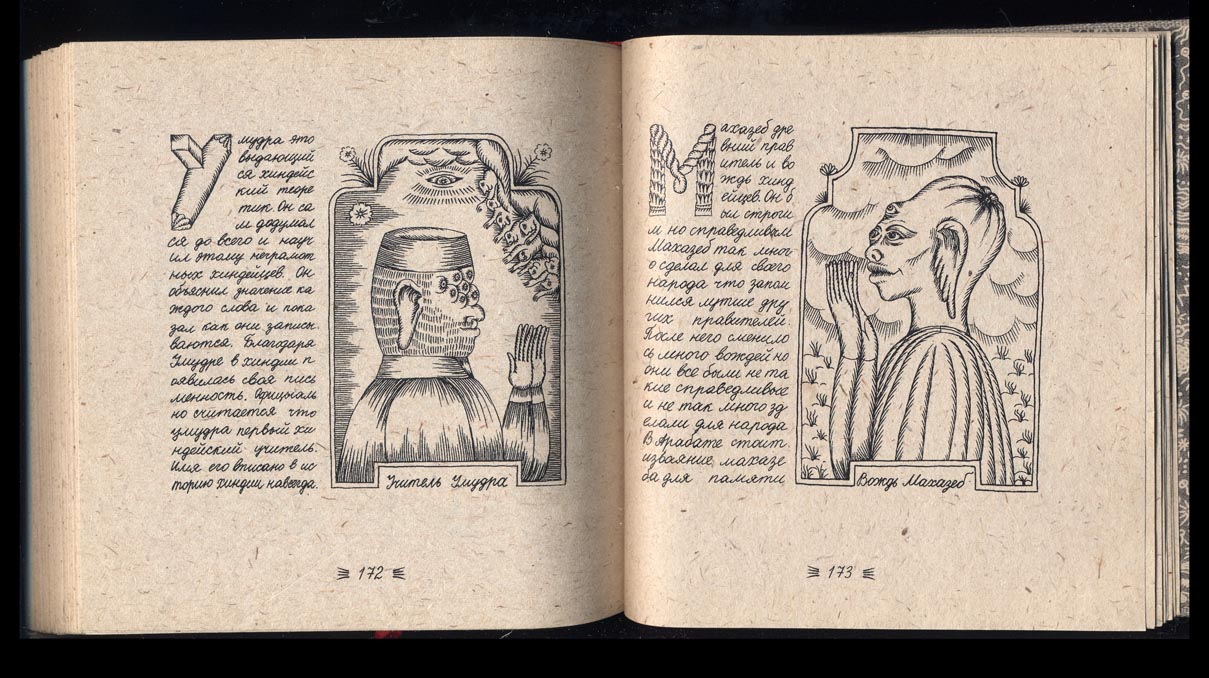 Умудра это
выдающий
ся хиндейс
кий теоре
тик. Он са
м додумал
ся до всего и науч
ил этому неграмот
ных хиндейцев. Он
объяснил значение ка
ждого слова и пока
зал как они записы
ваются. Благодаря
Умудре в хиндии п
оявилась своя пись
менность. Официаль
но считается что
умудра первый хи
ндейский учитель.
Имя его вписано в ис
торию хиндии навсегда.
Учитель Умудра
172
Махазеб дре
вний прав
итель и во
ждь хинд
ейцев. Он б
ыл строги
м но справедливым
Махазеб так мног
о сделал для своего
народа что запом
нился лутше дру
гих правителей.
После него сменило
сь много вождей но
они все были не та
кие справедливые
и не так много зд
елали для народа
В Арабате стоит
изваяние махазе
ба для памяти
Вождь Махазеб
173